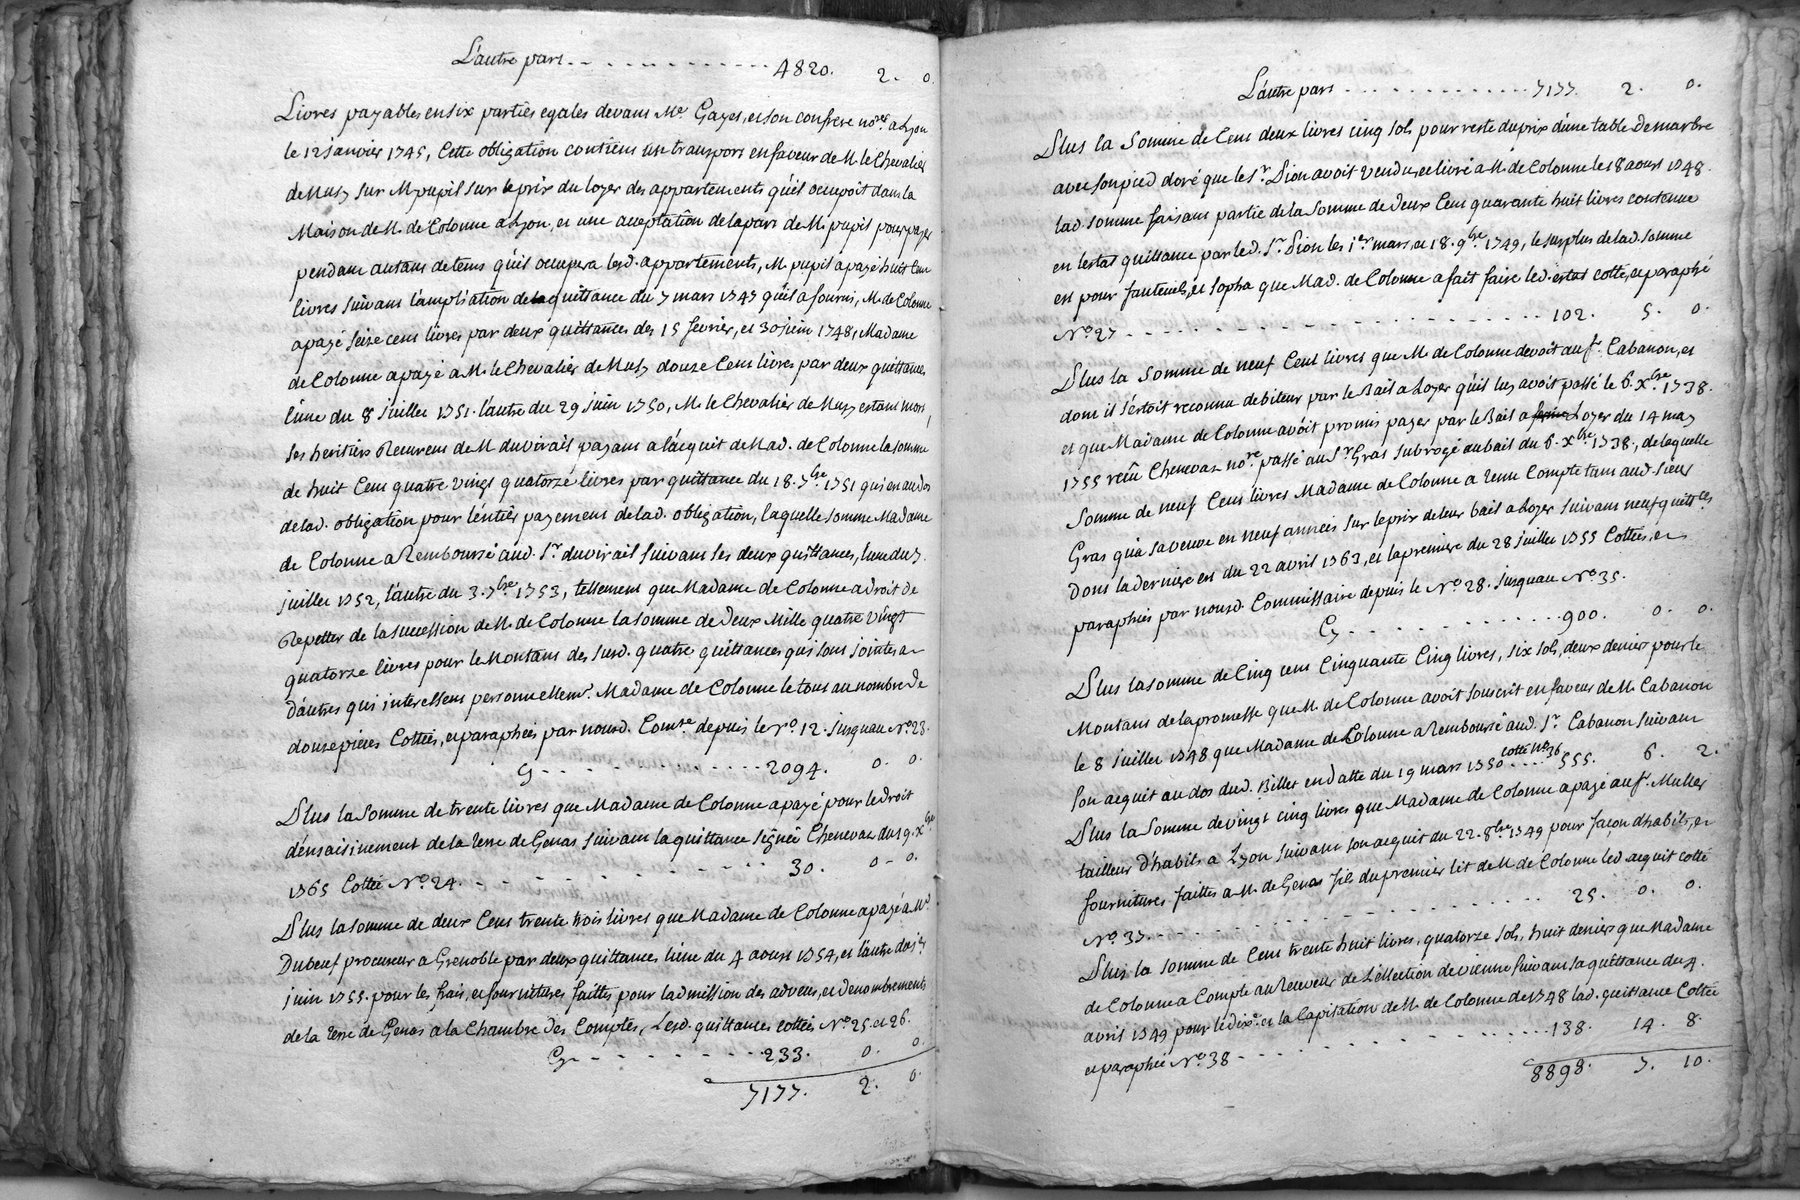 L'autre part . . . . . . . . . . . . 4820. 2. 0
Livres payables en six parties egales devant Me Gayet, et son confrere nores a Lyon
le 12 janvier 1745, Cette obligation contient un transport en faveur de M. le Chevalier
de Muzy sur M pupil sur le prix du loyer des appartements qu'il occupoit dans la
Maison de M. de Colonne a Lyon, et une acceptation de la part de M. pupil pour payer
pendant autant de tems qu'il occupera lesd. appartements, M. pupil a payé huit Cent
livres suivant l'ampliation de la quittance du 7 mars 1747 qu'il a fourni, M. de Colonne
a payé seize cent livres par deux quittances des 15 fevrier, et 30 juin 1748, Madame
de Colonne a payé a M. le Chevalier de Muzy douze Cent livres par deux quittances
l'une du 8 juillet 1751. l'autre du 29 juin 1750, M. le Chevalier de Muzy estant mort,
ses heritiers Recurent de M. duvirail payant a l'acquit de Mad. de Colonne la somme
de huit Cent quatre vingt quatorze livres par quittance du 18. 7bre 1751 qui en au dos
de lad. obligation pour l'entier payement de lad. obligation, laquelle somme Madame
de Colonne a Remboursé aud. Sr. duvirail suivant ses deux quittances, l'une du 7.
juillet 1752, l'autre du 3. 7bre 1753, tellement que Madame de Colonne a droit de
Repetter de la succession de M. de Colonne la somme de deux Mille quatre vingt
quatorze livres pour le Montant des susd. quatre quittances qui sont jointes a
d'autres qui interessent personnellemt. Madame de Colonne le tout au nombre de
douze pieces Cottées, et paraphées par nousd. Comre depuis le No. 12. jusquau No 23.
Cy . . . . . . . . . . . . 2094. 0. 0.
Plus la somme de trente livres que Madame de Colonne a payé pour le droit
d'ensaisinement de la Terre de Genas suivant la quittance signée Chenevaz du 19. Xbre
1765 Cottée No. 24. . . . . . . . . . . . 30. 0 - 0.
Plus la somme de deux Cent trente trois livres que Madame de Colonne a payé a Me
Dubeuf procureur a Grenoble par deux quittances l'une du 4 aoust 1754, et l'autre du 1er
juin 1755. pour les frais, et fournitures faittes pour l'admission des adveus, et denombrements
de la Terre de Genas a la Chambre des Comptes, Lesd. quittances cottées No 25 et 26.
Cy . . . . . . . . . . . 233. 0. 0
7177. 2. 0.
L'autre part . . . . . . . . . . . . 7177. 2. 0.
Plus la Somme de Cent deux livres cinq sols pour reste du prix d'une table de marbre
avec son pied doré que le Sr. Dion avoit vendu, et livré a M. de Colonne le 18 aoust 1748.
lad. somme faisant partie de la somme de deux Cent quarante huit livres contenue
en l'estat quittancé par led. Sr. Dion les 1er mars, et 18. 9bre 1749, le surplus de lad. somme
est pour fauteuils, et sopha que Mad. de Colonne a fait faire led. estat cotté, et paraphé
No. 27 . . . . . . . . . . . . . . . . . 102. 5. 0.
Plus la Somme de neuf Cent livres que M. de Colonne devoit au Sr. Cabanon, et
dont il s'estoit reconnu debiteur par le Bail a Loyer qu'il luy avoit passé le 6. Xbre 1738.
et que Madame de Colonne avoit promis payer par le Bail a Loyer du 14 may
1755 recû Chenevaz nore. passé au Sr Gras subrogé au bail du 6. Xbre 1738, de laquelle
Somme de neuf Cent livres Madame de Colonne a Tenu Compte tant aud. sieur
Gras qu'a sa veuve en neuf années sur le prix de leur bail a Loyer suivant neuf quittces
dont la derniere en du 22 avril 1763, et la premiere du 28 juillet 1755 Cottées, et
paraphées par nousd. Commissaire depuis le No. 28. jusquau No. 35.
Cy . . . . . . . . . . . . . . 900. 0. 0.
Plus la somme de Cinq cent Cinquante Cinq livres, six sols, deux deniers pour le
Montant de la promesse que M. de Colonne avoit souscrit en faveur de M. Cabanon
le 8 juillet 1748 que Madame de Colonne a Remboursé aud. Sr. Cabanon suivant
son acquit au dos dud. Billet en datte du 19 mars 1750 cotté No 36 . . . . 555. 6. 2.
Plus la Somme de vingt cinq livres que Madame de Colonne a payé au Sr. Muller
tailleur d'habits a Lyon suivant son acquit du 22. 8bre 1749 pour facon d'habits, et
fournitures faittes a M. de Genas fils du premier lit de M. de Colonne led. acquit cotté
No. 37. . . . . . . . . . . . . . . . . 25. 0. 0.
Plus la somme de Cent trente huit livres, quatorze sols, huit deniers que Madame
de Colonne a Compté au Receveur de L'ellection de vienne suivant sa quittance du 4.
avril 1749 pour le dixe. et la Capitation de M. de Colonne de 1748 lad. quittance Cottée
et paraphée No. 38 . . . . . . . . . . . 138. 14. 8.
8898. 7. 10.